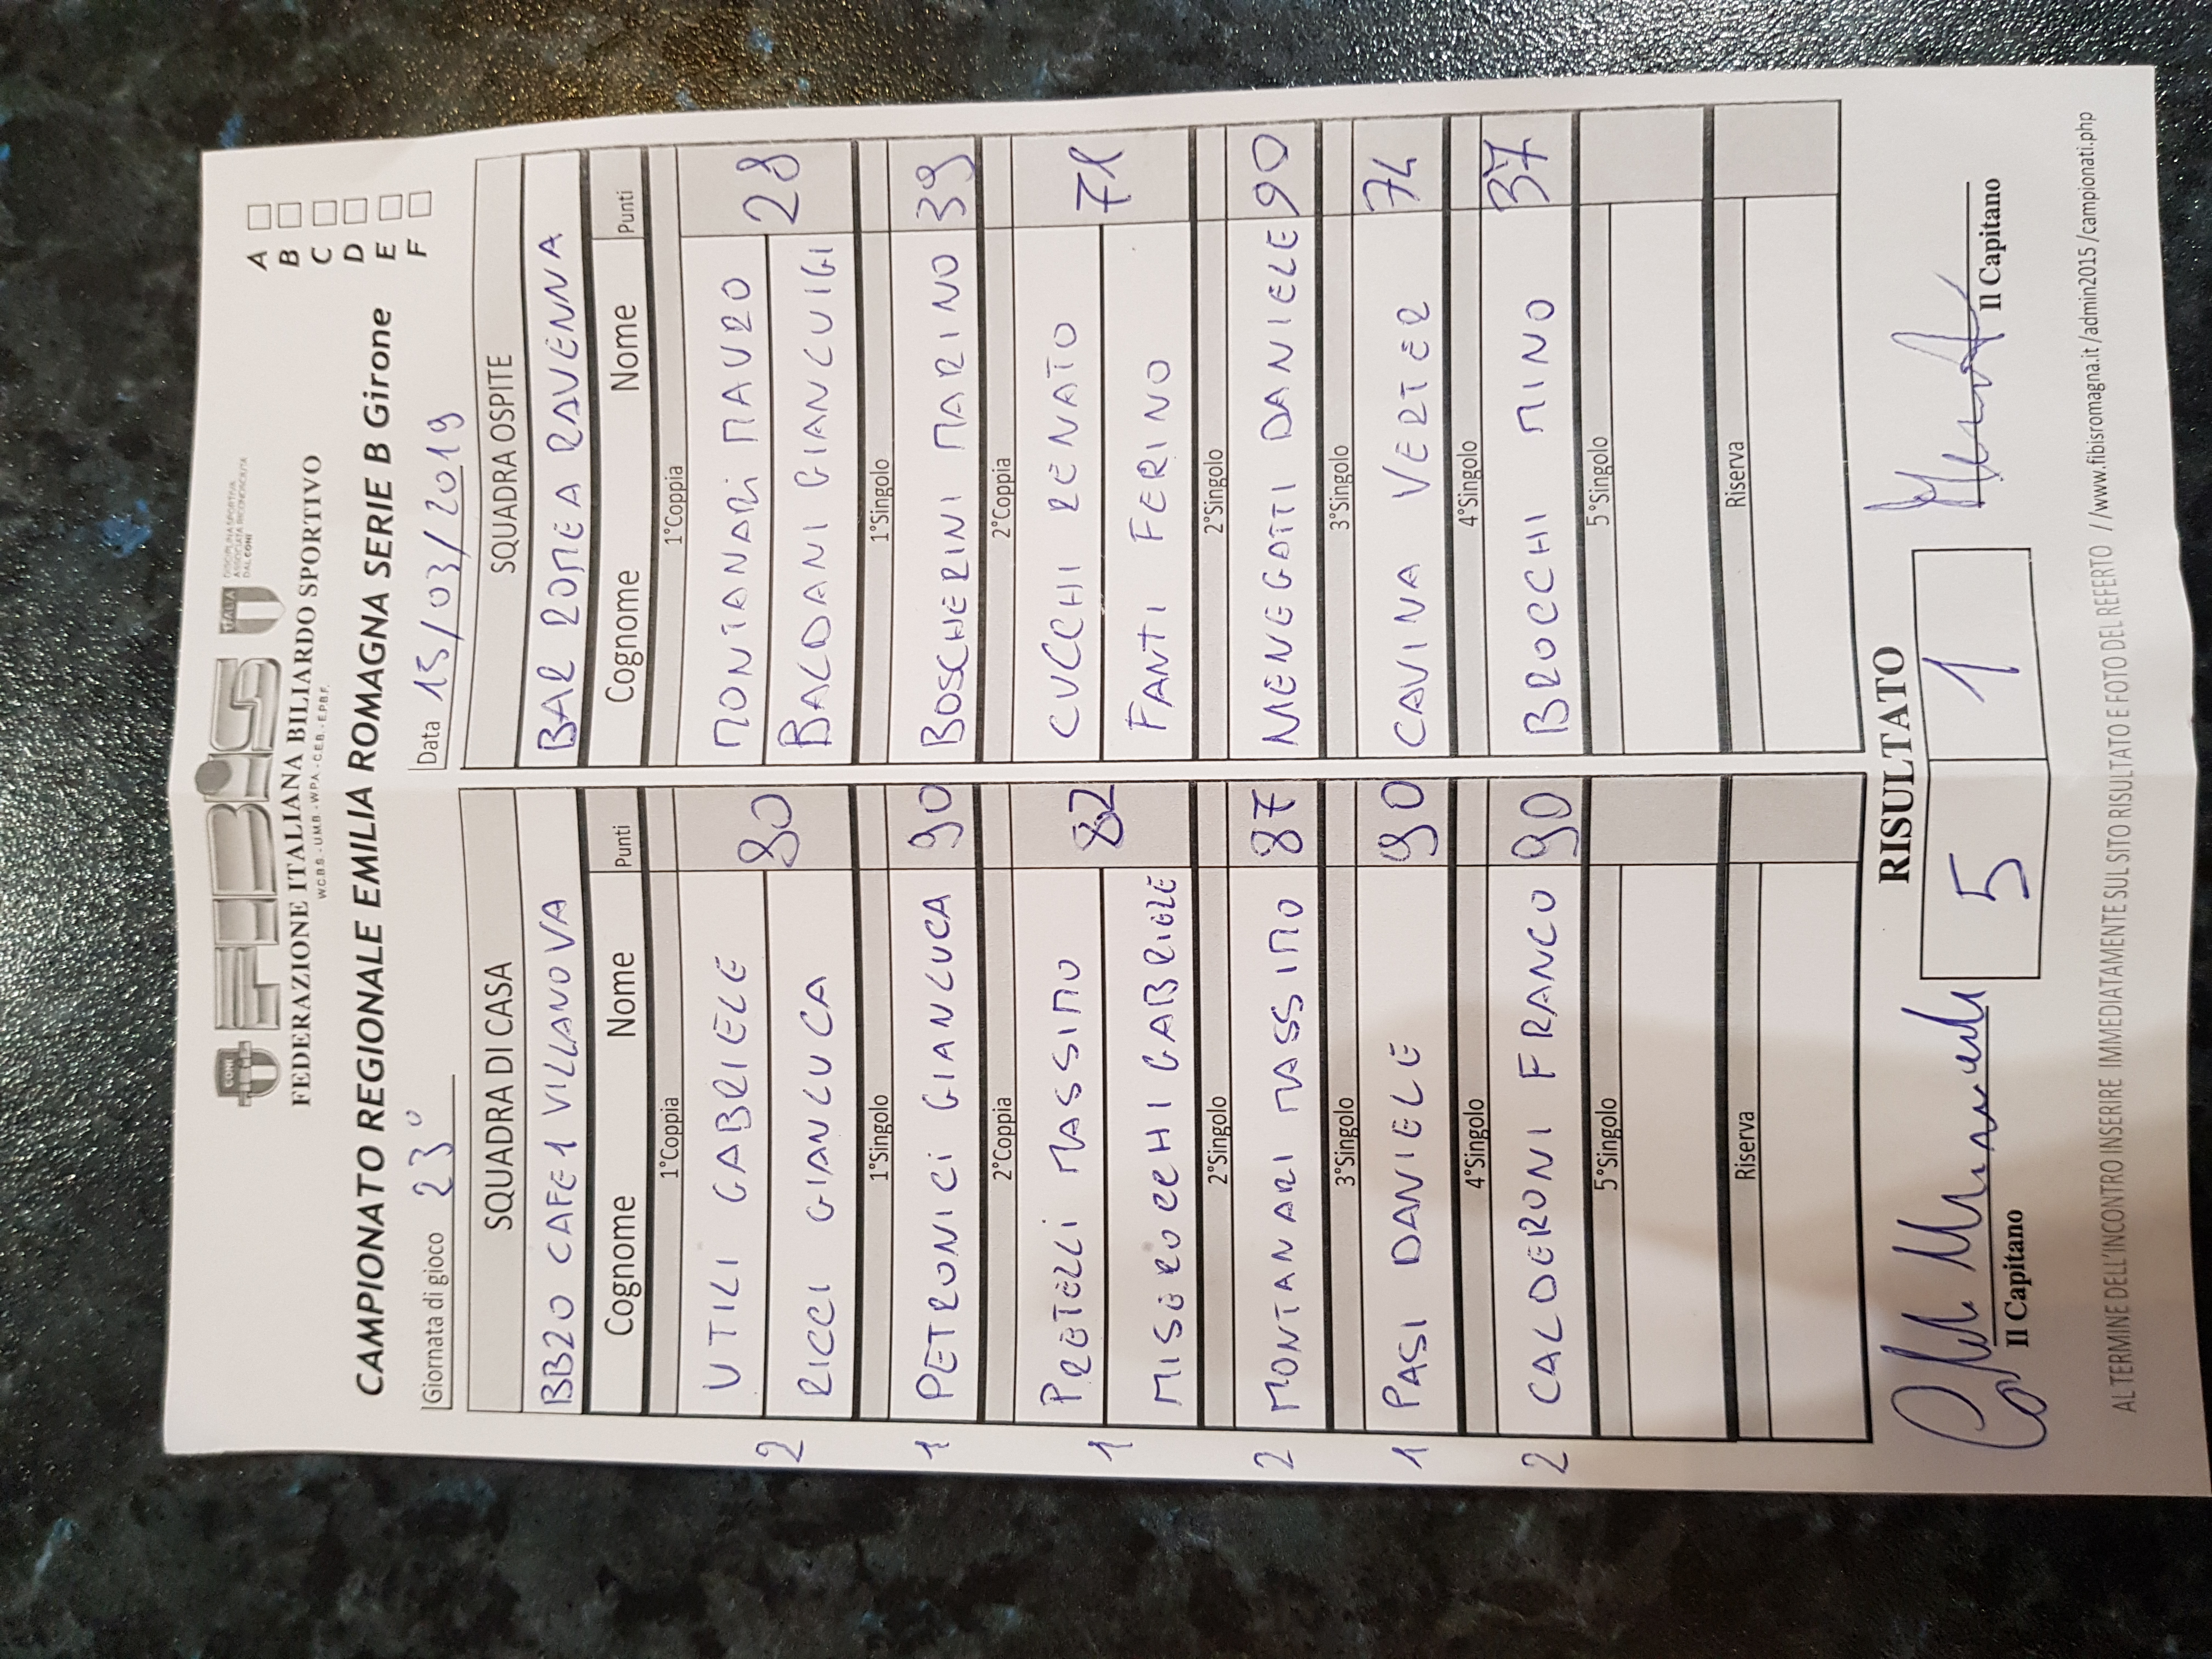 CONI FIBiS ITALIA DISCIPLINA SPORTIVA
ASSOCIATA RICONOSCIUTA
DAL CONI
FEDERAZIONE ITALIANA BILIARDO SPORTIVO
W.C.B.S. - U.M.B. - W.P.A. - C.E.B. - E.P.B.F.
CAMPIONATO REGIONALE EMILIA ROMAGNA SERIE B Girone
A
B
C
D
E
F
Giornata di gioco 23° Data 15/03/2019
SQUADRA DI CASA SQUADRA OSPITE
BB20 CAFE 1 VILLANOVA BAR ROMEA RAVENNA
Cognome Nome Punti Cognome Nome Punti
1°Coppia 1°Coppia
UTILI GABRIELE MONTANARI MAURO
2 90 28
RICCI GIANLUCA BALDANI GIANLUIGI
1°Singolo 1°Singolo
1 PETRONICI GIANLUCA 90 BOSCHERINI MARINO 39
2°Coppia 2°Coppia
PRETELLI MASSIMO CUCCHI RENATO
1 82 71
MISEROCCHI GABRIELE FANTI FERINO
2°Singolo 2°Singolo
2 MONTANARI MASSIMO 87 MENEGATTI DANIELE 90
3°Singolo 3°Singolo
1 PASI DANIELE 90 CAVINA VERTER 74
4°Singolo 4°Singolo
2 CALDERONI FRANCO 90 BROCCHI MINO 37
5°Singolo 5°Singolo
Riserva Riserva
RISULTATO
5 1
Il Capitano Il Capitano
AL TERMINE DELL'INCONTRO INSERIRE IMMEDIATAMENTE SUL SITO RISULTATO E FOTO DEL REFERTO //www.fibisromagna.it/admin2015/campionati.php